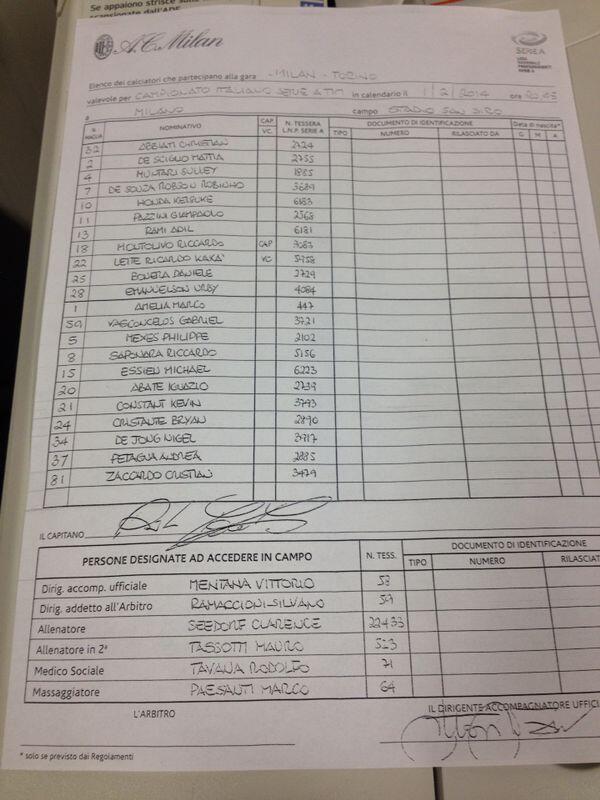 Se appaiono strisce
scansionate dall'ADF
A.C. Milan
SERIE A
LEGA
NAZIONALE
PROFESSIONISTI
SERIE A
Elenco dei calciatori che partecipano alla gara MILAN - TORINO
valevole per CAMPIONATO ITALIANO SERIE A TIM in calendario il 1/2/2014 ore 20,45
a MILANO campo STADIO SAN SIRO
N. MAGLIA NOMINATIVO CAP. VC. N. TESSERA L.N.P. SERIE A DOCUMENTO DI IDENTIFICAZIONE TIPO NUMERO RILASCIATO DA Data di nascita* G M A
32 ABBIATI CHRISTIAN 2724
2 DE SCIGLIO MATTIA 2755
4 MUNTARI SULLEY 1885
7 DE SOUZA ROBSON ROBINHO 3689
10 HONDA KEISUKE 6183
11 PAZZINI GIAMPAOLO 2568
13 RAMI ADIL 6181
18 MONTOLIVO RICCARDO CAP 3083
22 LEITE RICARDO KAKA' VC 5958
25 BONERA DANIELE 2729
28 EMANUELSON URBY 4084
1 AMELIA MARCO 447
59 VASCONCELOS GABRIEL 3721
5 MEXES PHILIPPE 2102
8 SAPONARA RICCARDO 5156
15 ESSIEN MICHAEL 6223
20 ABATE IGNAZIO 2739
21 CONSTANT KEVIN 3793
24 CRISTANTE BRYAN 2890
34 DE JONG NIGEL 3717
37 PETAGNA ANDREA 2885
81 ZACCARDO CRISTIAN 3479
IL CAPITANO
PERSONE DESIGNATE AD ACCEDERE IN CAMPO N. TESS. DOCUMENTO DI IDENTIFICAZIONE TIPO NUMERO RILASCIAT
Dirig. accomp. ufficiale MENTANA VITTORIO 53
Dirig. addetto all'Arbitro RAMACCIONI SILVANO 59
Allenatore SEEDORF CLARENCE 22433
Allenatore in 2ª TASSOTTI MAURO 523
Medico Sociale TAVANA RODOLFO 71
Massaggiatore PAESANTI MARCO 64
L'ARBITRO IL DIRIGENTE ACCOMPAGNATORE UFFICI
* solo se previsto dai Regolamenti